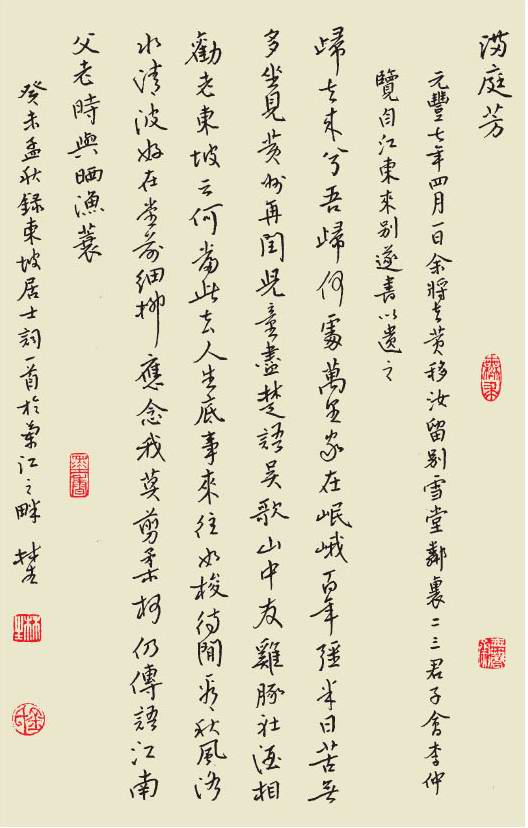 满庭芳
元豐七年四月一日余將去黄移汝留别雪堂鄰裏二三君子會李仲
覽自江東來别遂書以遺之
歸去來兮吾歸何處萬里家在岷峨百年彊半日苦無
多坐見黄州再閏兒童盡楚語吴歌山中友雞豚社酒相
勸老東坡云何當此去人生底事來往如梭待閒看秋風洛
水清波好在堂前細柳應念我莫剪柔柯仍傳語江南
父老時與晒漁蓑
癸未孟秋録東坡居士詞一首於蘭江之畔